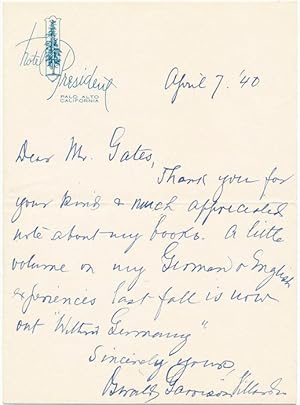 Hotel
President
PALO ALTO
CALIFORNIA
April 7. '40
Dear Mr. Gates,
Thank you for
your kind & much appreciated
note about my books. A little
volume on my German & English
experiences last fall is now
out "Within Germany"
Sincerely yours,
Oswald Garrison Villard